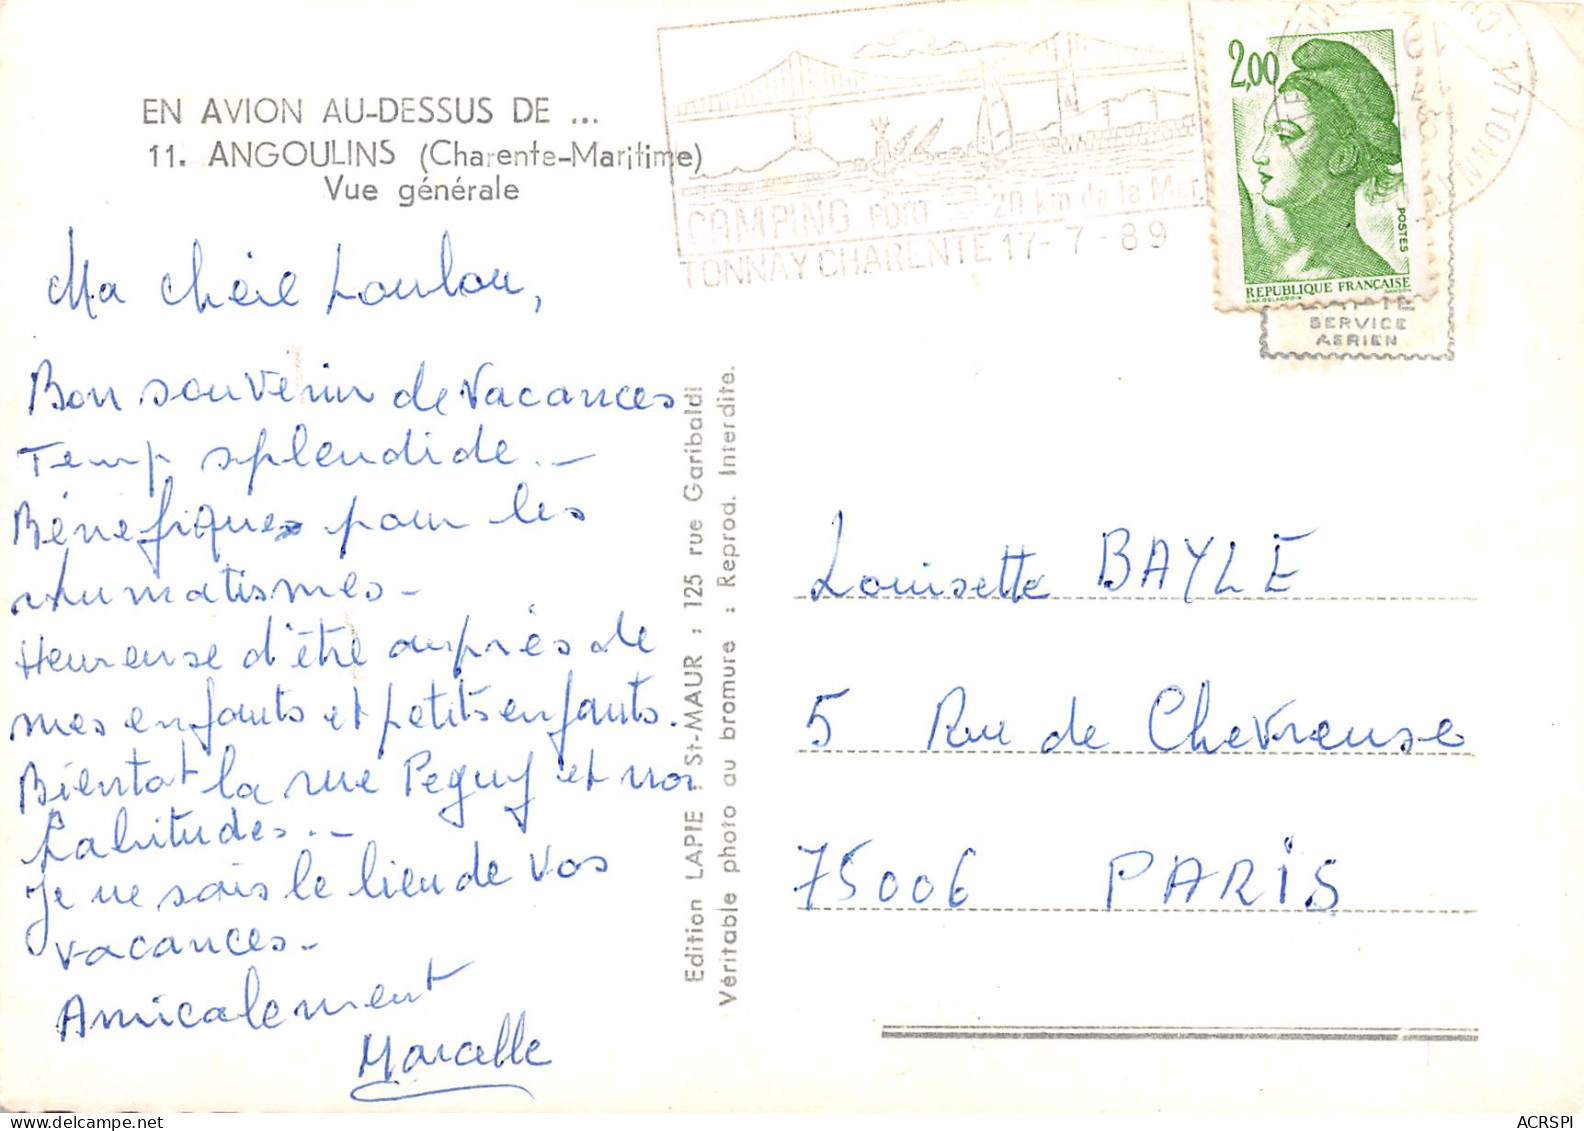 EN AVION AU-DESSUS DE ...
11. ANGOULINS (Charente-Maritime)
Vue générale
Ma chère Loulou,
Bon souvenir de vacances
Temp splendide. -
Bénéfiques pour les
rhumatismes -
Heureuse d'être auprès de
mes enfants et petits enfants.
Bientot la rue Peguy et nos
habitudes. . -
Je ne sais le lieu de vos
vacances -
Amicalement
Marcelle
Edition LAPIE : St-MAUR ; 125 rue Garibaldi
Véritable photo au bromure : Reprod. Interdite.
CAMPING PORT - 20 km de la Mer
TONNAY CHARENTE 17 - 7 - 89
17 TONN
2,00
POSTES
REPUBLIQUE FRANÇAISE
SERVICE
AERIEN
Louisette BAYLE
5 Rue de Chevreuse
75006 PARIS
ACRSPI